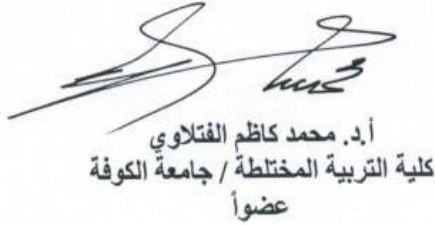 أ.د. محمد كاظم الفتلاوي
كلية التربية المختلطة / جامعة الكوفة
عضواً